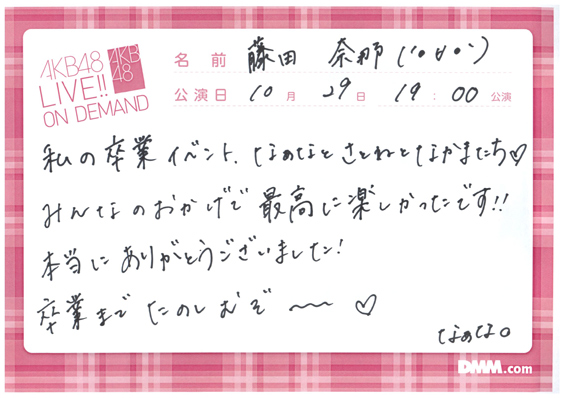 AKB48
LIVE!!
ON DEMAND
AKB
48
名前 藤田 奈那(*°∀°*)
公演日 10月 29日 19:00 公演
私の卒業イベント、なぁなとさとねとなかまたち♡
みんなのおかげで最高に楽しかったです!!
本当にありがとうございました!
卒業までたのしむぞ〜〜♡
なぁな。
DMM.com